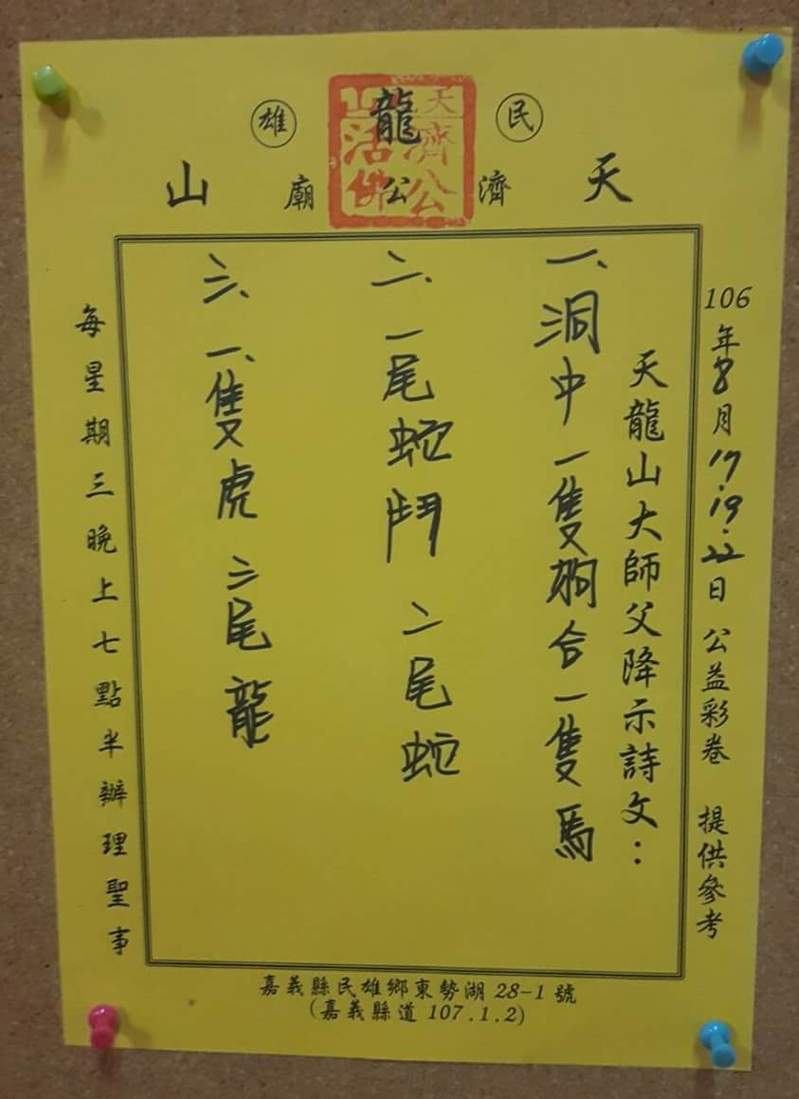 民雄
天龍山
濟公廟
天龍山
濟公
活佛
106年8月17.19.22日 公益彩卷 提供參考
天龍山大師父降示詩文：
一、洞中一隻狗合一隻馬
二、一尾蛇鬥二尾蛇
三、一隻虎三尾龍
每星期三晚上七點半辦理聖事
嘉義縣民雄鄉東勢湖28-1號
(嘉義縣道107.1.2)